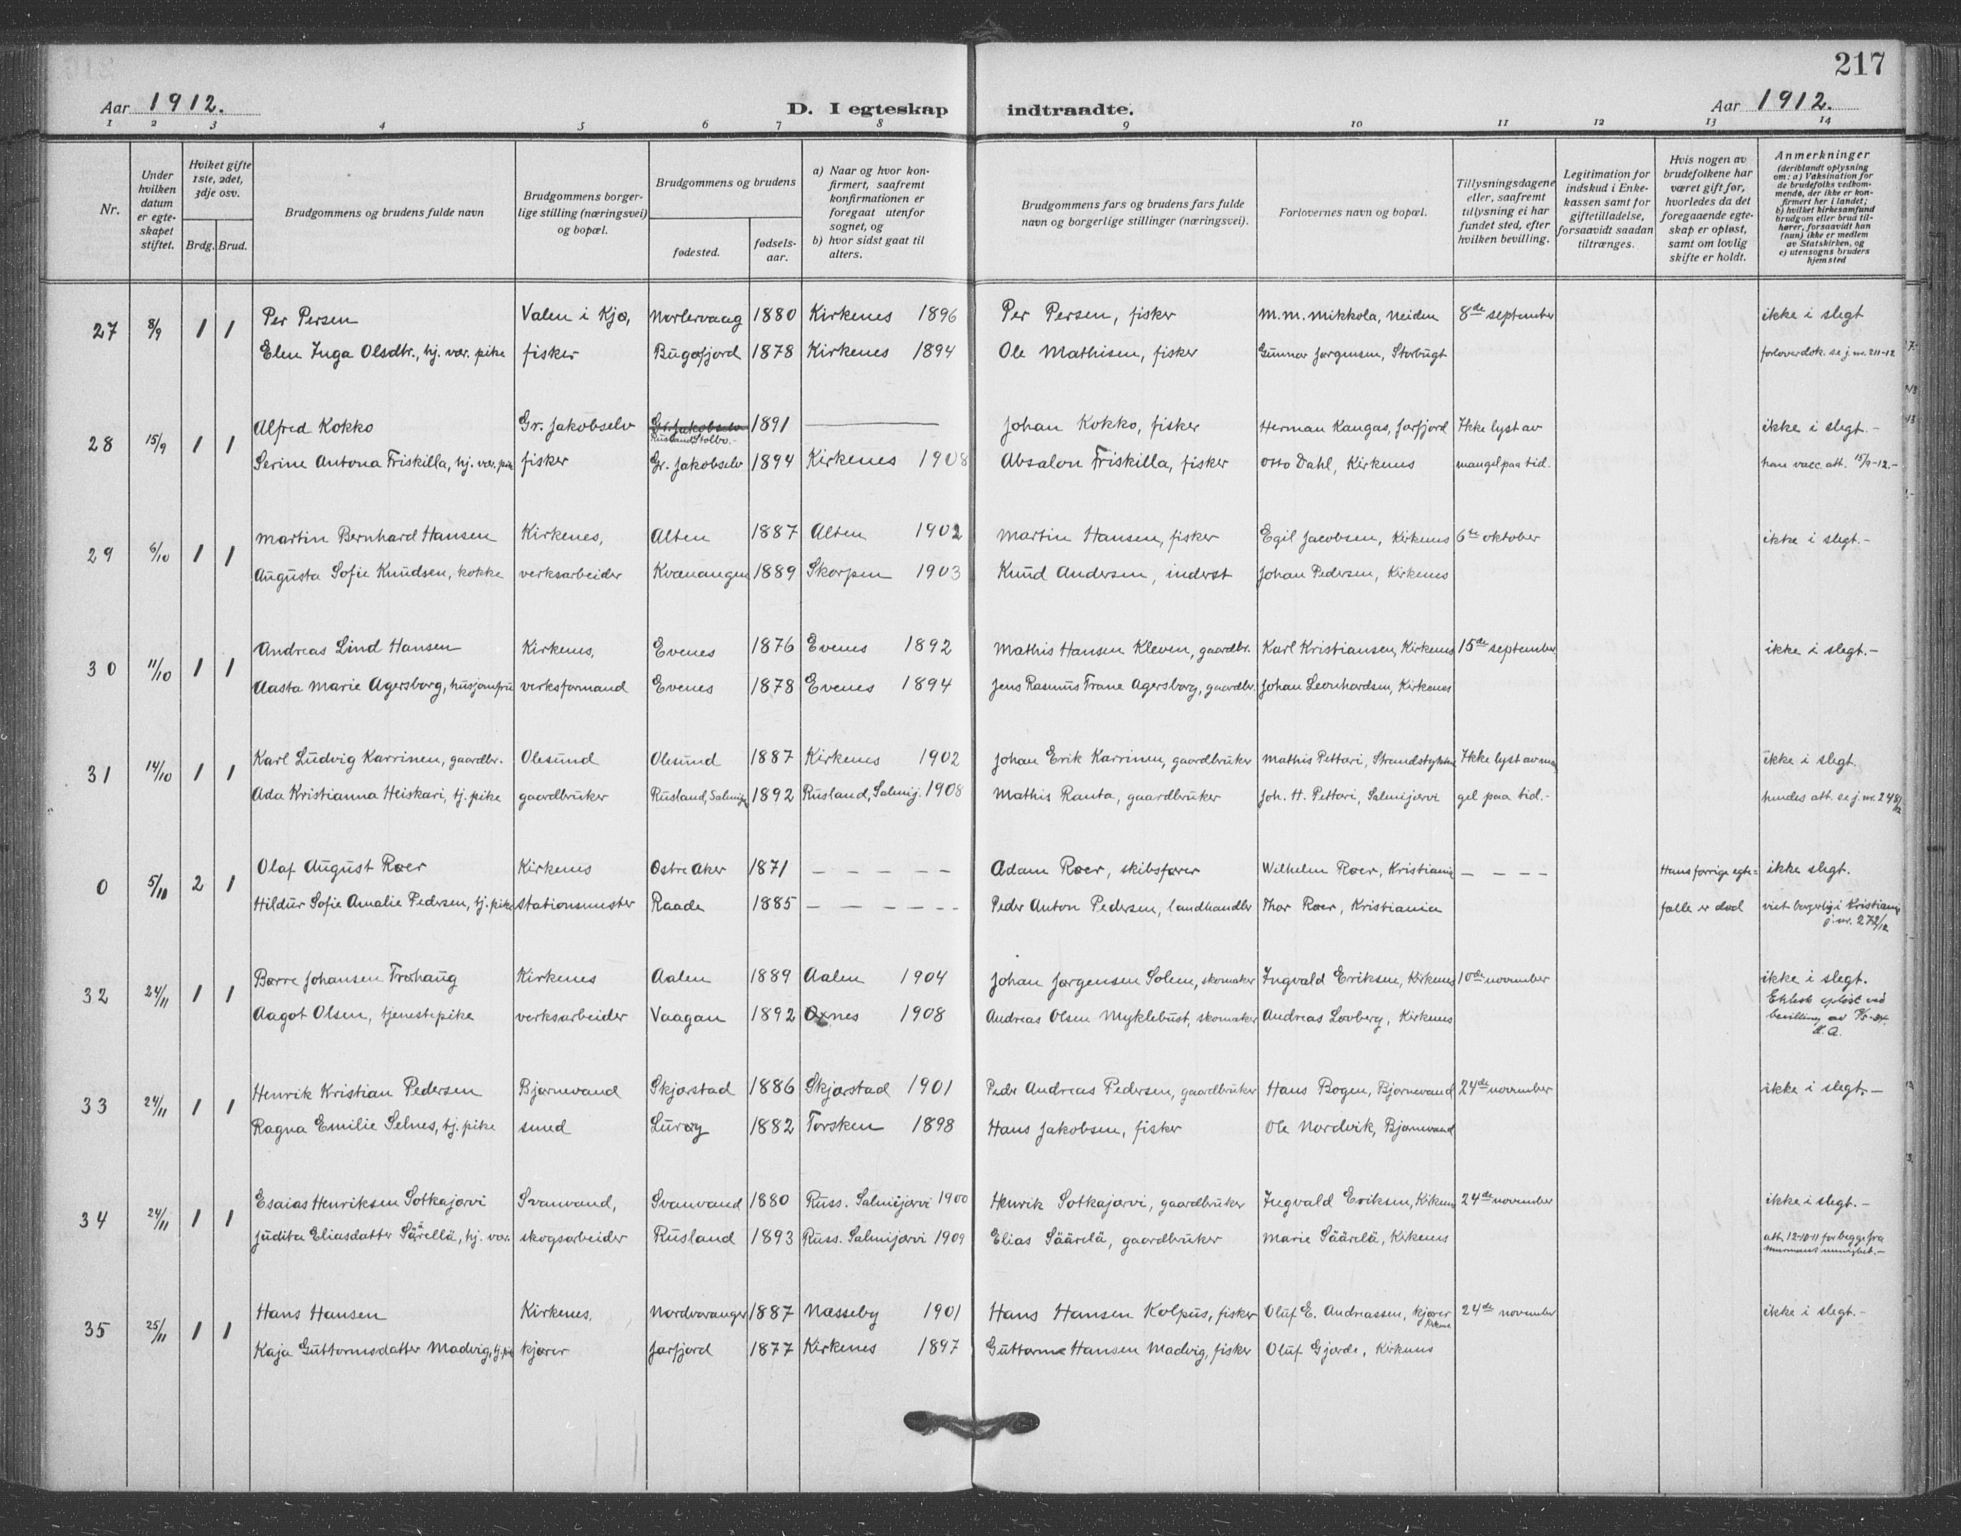 217
Aar 1912. D. I egteskap indtraadte. Aar 1912.
1 2 3 4 5 6 7 8 9 10 11 12 13 14
Nr.
Under hvilken datum er egteskapet stiftet.
Hviket gifte 1ste, 2det, 3dje osv.
Brdg. Brud.
Brudgommens og brudens fulde navn
Brudgommens borgerlige stilling (næringsvei) og bopæl.
Brudgommens og brudens
fødested. fødselsaar.
a) Naar og hvor konfirmert, saafremt konfirmationen er foregaat utenfor sognet, og b) hvor sidst gaat til alters.
Brudgommens fars og brudens fars fulde navn og borgerlige stillinger (næringsvei).
Forlovernes navn og bopæl.
Tillysningsdagene eller, saafremt tillysning ei har fundet sted, efter hvilken bevilling.
Legitimation for indskud i Enkekassen samt for giftetilladelse, forsaavidt saadan tiltrænges.
Hvis nogen av brudefolkene har været gift før, hvorledes da det foregaaende egteskap er opløst, samt om lovlig skifte er holdt.
Anmerkninger (deriblandt oplysning om: a) Vaksination for de brudefolks vedkommende, der ikke er konfirmert her i landet; b) hvilket kirkesamfund brudgom eller brud tilhører, forsaavidt han (hun) ikke er medlem av Statskirken, og c) utensogns bruders hjemsted
27 8/9 1 1 Per Persen Valen i Kjø, 1880 Kirkenes 1896 Per Persen, fisker M.M. Mikkola, Neiden 8de september ikke i slegt
Elen Inga Olsdtr., hj. vær. pike fisker Bugøfjord 1878 Kirkenes 1894 Ole Mathisen, fisker Gunnar Jørgensen, Storbugt forloverdok. se j. nr. 211-12
28 15/9 1 1 Alfred Kokko Gr. Jakobselv Gr. Jakobselv 1891 Johan Kokko, fisker Herman Kangas, Jarfjord Ikke lyst av ikke i slegt.-
Rusland
Serine Antona Friskilla, hj. vær. pik fisker Gr. Jakobselv 1894 Kirkenes 1908 Absalon Friskilla, fisker Otto Dahl, Kirkenes mangel paa tid. han vacc. att. 15/9-12.-
29 6/10 1 1 Martin Bernhard Hansen Kirkenes, Alten 1887 Alten 1902 Martin Hansen, fisker Egil Jacobsen, Kirkenes 6te oktober ikke i slegt.-
Augusta Sofie Knudsen, kokke verksarbeider Kvænangen 1889 Skorpen 1903 Knud Andersen, inderst Johan Pedersen, Kirkenes
30 11/10 1 1 Andreas Lind Hansen Kirkenes, Evenes 1876 Evenes 1892 Mathis Hansen Kleven, gaardbr. Karl Kristiansen, Kirkenes 15de september ikke i slegt.-
Aasta Marie Agersborg, husjomfru verksformand Evenes 1878 Evenes 1894 Jens Rasmus Frane Agersborg, gaardbr. Johan Leonhardsen, Kirkenes
31 14/10 1 1 Karl Ludvig Karrinen, gaardbr. Olesund Olesund 1887 Kirkenes 1902 Johan Erik Karrinen, gaardbruker Mathis Pettari, Ikke lyst av man ikke i slegt.
Ada Kristianna Heiskari, tj. pike gaardbruker Rusland, Salmij. 1892 Rusland, Salmij. 1908 Mathis Ranta, gaardbruker Joh. H. Pettari, Salmijærvi gel paa tid.- hendes att. se j. nr. 248/12
0 5/10 2 1 Olaf August Roer Kirkenes Østre Aker 1871 – – – – – Adam Roer, skibsfører Wilhelm Roer, Kristiania – – – – Hans forrige egte= ikke slegt.
Hildur Sofie Amalie Pedersen, tj. pike stationsmester Raade 1885 – – – – – – Peder Anton Pedersen, landhandler Thor Roer, Kristiania fælle er død viet borgerlig i Kristiania
j. nr. 272/12
32 24/11 1 1 Børre Johansen Trøhaug Kirkenes Aalen 1889 Aalen 1904 Johan Jørgensen Solem, skomaker Ingvald Eriksen, Kirkenes 10de november ikke i slegt.
Aagot Olsen, tjenestepike verksarbeider Vaagan 1892 Øxnes 1908 Andreas Olsen Myklebust, skomaker Andreas Lovberg, Kirkenes Ektesk. opløst ved
bevilling av
33 24/11 1 1 Henrik Kristian Pedersen Bjørnevand Skjærstad 1886 Skjærstad 1901 Peder Andreas Pedersen, gaardbruker Hans Bogen, Bjørnevand 24de november ikke i slegt.-
Ragna Emilie Selnes, tj. pike smed Lurøy 1882 Torsken 1898 Hans Jakobsen, fisker Ole Nordvik, Bjørnevand
34 24/11 1 1 Esaias Henriksen Sotkajærvi Svanvand, Svanvand 1880 Russ. Salmijærvi 1900 Henrik Sotkajærvi, gaardbruker Ingvald Eriksen, Kirkenes 24de november ikke i slegt.-
Judita Eliasdatter Säärelä, hj. vær. skogsarbeider Rusland 1893 Russ. Salmijærvi 1909 Elias Säärelä, gaardbruker Marie Säärelä, Kirkenes att. 12-10-11 for begge fra
murmansk menighet.-
35 25/11 1 1 Hans Hansen Kirkenes, Nordvaranger 1887 Næsseby 1901 Hans Hansen Kolpus, fisker Oluf E. Andreassen, kjører 24de november ikke i slegt.-
Kaja Guttormsdatter Madvig, tj. pik kjører Jarfjord 1877 Kirkenes 1897 Guttorm Hansen Madvig, fisker Oluf Gjerde, Kirkenes